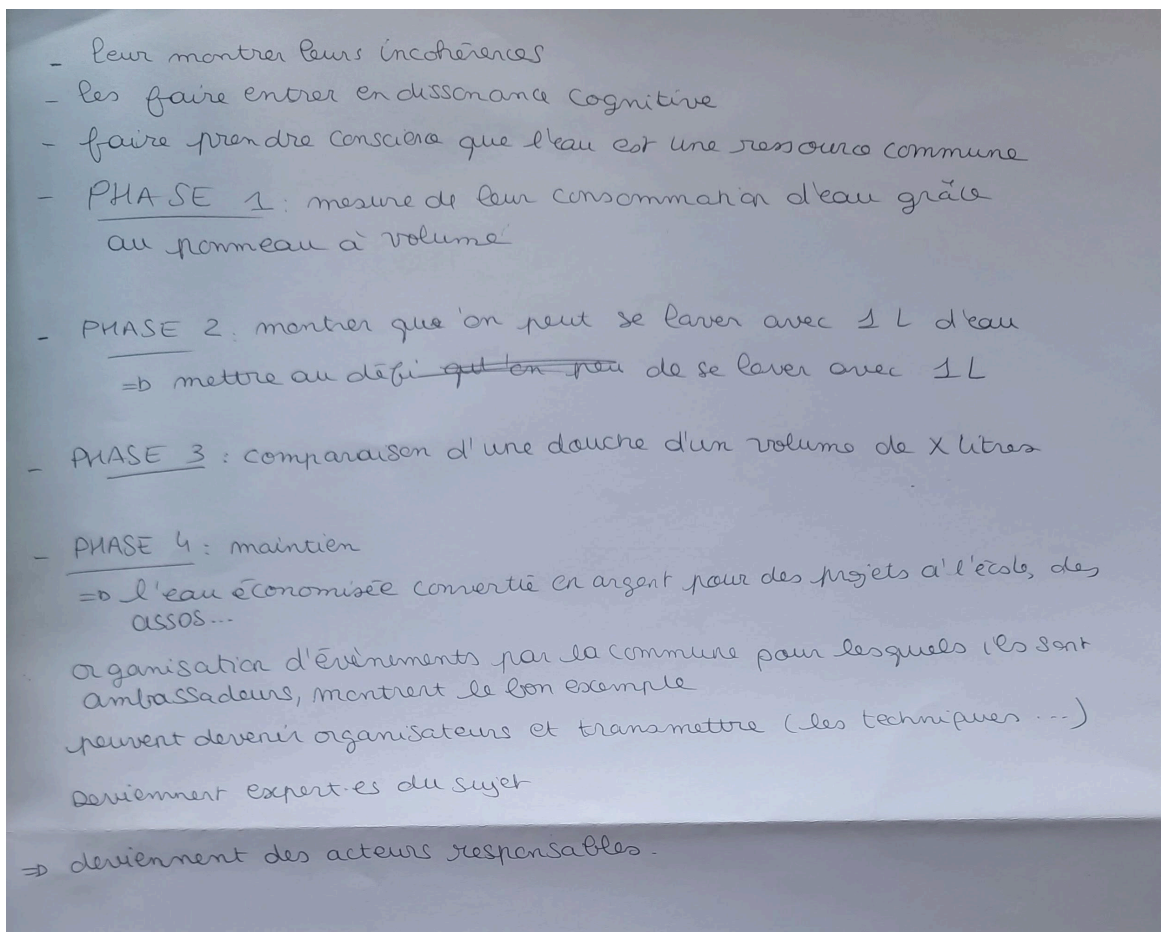 - leur montrer leurs incohérences
- les faire entrer en dissonance cognitive
- faire prendre conscience que l'eau est une ressource commune
- PHASE 1 : mesure de leur consommation d'eau grâce
au pommeau à volume
- PHASE 2 : montrer que on peut se laver avec 1 L d'eau
=> mettre au défi qu'on peu de se laver avec 1L
- PHASE 3 : comparaison d'une douche d'un volume de X litres
- PHASE 4 : maintien
=> l'eau économisée convertie en argent pour des projets à l'école, des
assos...
organisation d'évènements par la commune pour lesquels ils sont
ambassadeurs, montrent le bon exemple
peuvent devenir organisateurs et transmettre (les techniques ...)
Deviennent expert·es du sujet
=> deviennent des acteurs responsables.